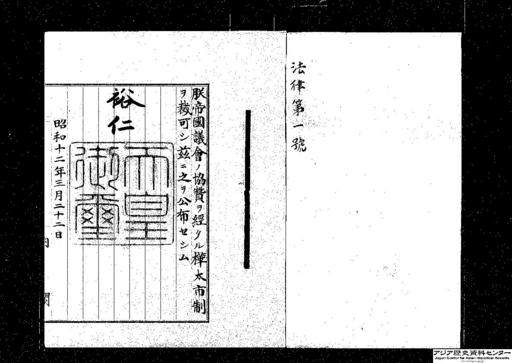 法律第一號
朕帝國議會ノ協贊ヲ經タル樺太市制
ヲ裁可シ茲ニ之ヲ公布セシム
裕仁
天皇御璽
昭和十二年三月二十二日
内閣
アジア歴史資料センター
Japan Center for Asian Historical Records